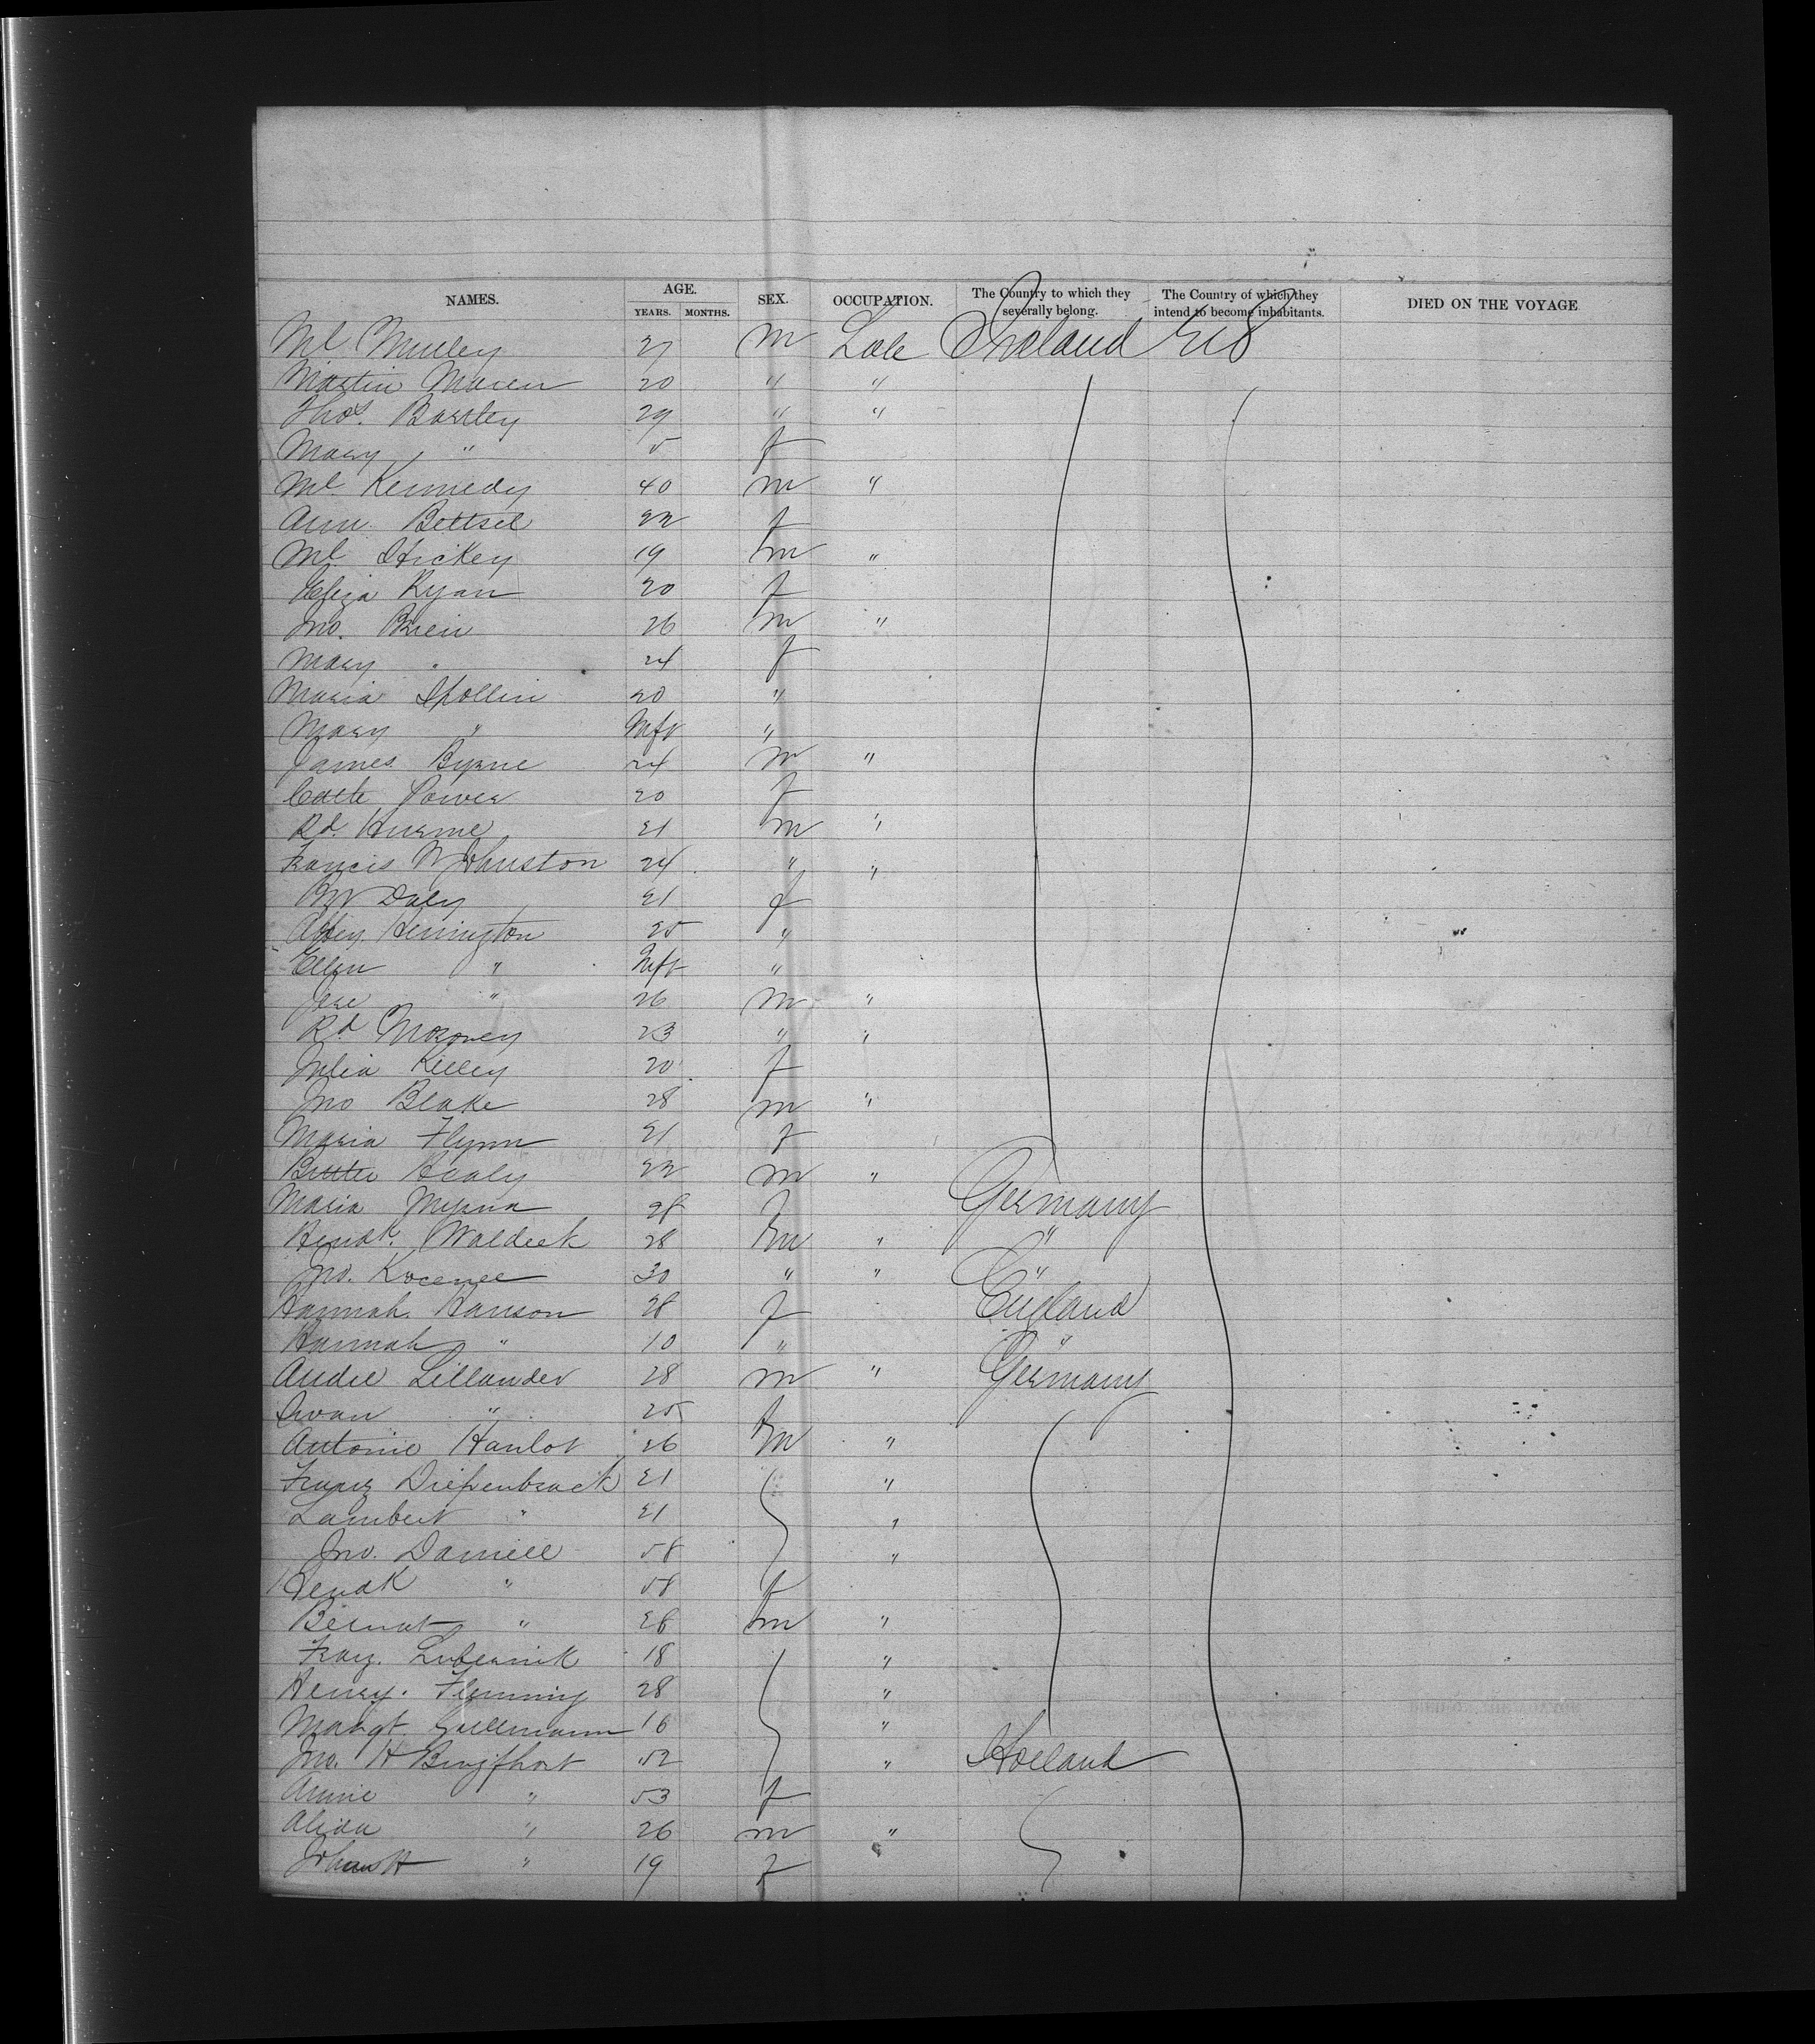 NAMES. AGE. YEARS. MONTHS. SEX. OCCUPATION. The Country to which they severally belong. The Country of which they intend to become inhabitants. DIED ON THE VOYAGE
Ml 27 m Lab Ireland US
Martin 20 " "
Thos. Bartley 29 " "
Mary " 5 f
Ml. Kennedy 40 m "
Ann. 22 f
Ml Hickey 19 m "
Eliza Ryan 20 f
Jno. Brien 26 m "
Mary " 24 f
Maria 20 "
Mary " Inft "
James Byrne 24 m "
Cath Power 20 f
Rd. 21 m "
Francis Johnston 24 " "
Daly 21 f
Abbey Herrington 25 "
Ellen " Inft "
Jere " 26 m "
Rd Moroney 23 " "
Julia Kelley 20 f
Jno Blake 28 m "
Maria Flynn 21 f
Healy 22 m "
Maria 28 f Germany
Hendk. Waldeck 28 m " "
Jno. 30 " " "
Hannah Hanson 28 f England
Hannah " 10 " "
Andre Lillander 28 m " Germany
" 25 f
Antonie 26 m "
Franz Diepenbrack 21 "
Lambert " 21 "
Jno. Daniell 58 "
Hendk " 58 f
Bernat " 28 m "
Franz. 18 "
Henry. Flemming 28 "
Margt. 16 "
Jno. H 52 " Holland
Annie " 53 f
Alida " 26 m "
" 19 f